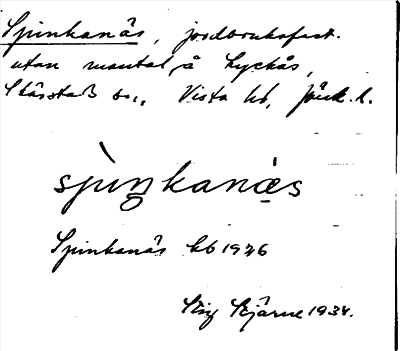 Sjunkanäs, jordbruksfast.
utan mantal å Lyckås,
Skärstads sn., Vista hd, Jönk. l.
sjùŋkanä̀s
Sjunkanäs kb 1926
Stig Bjärne 1934.